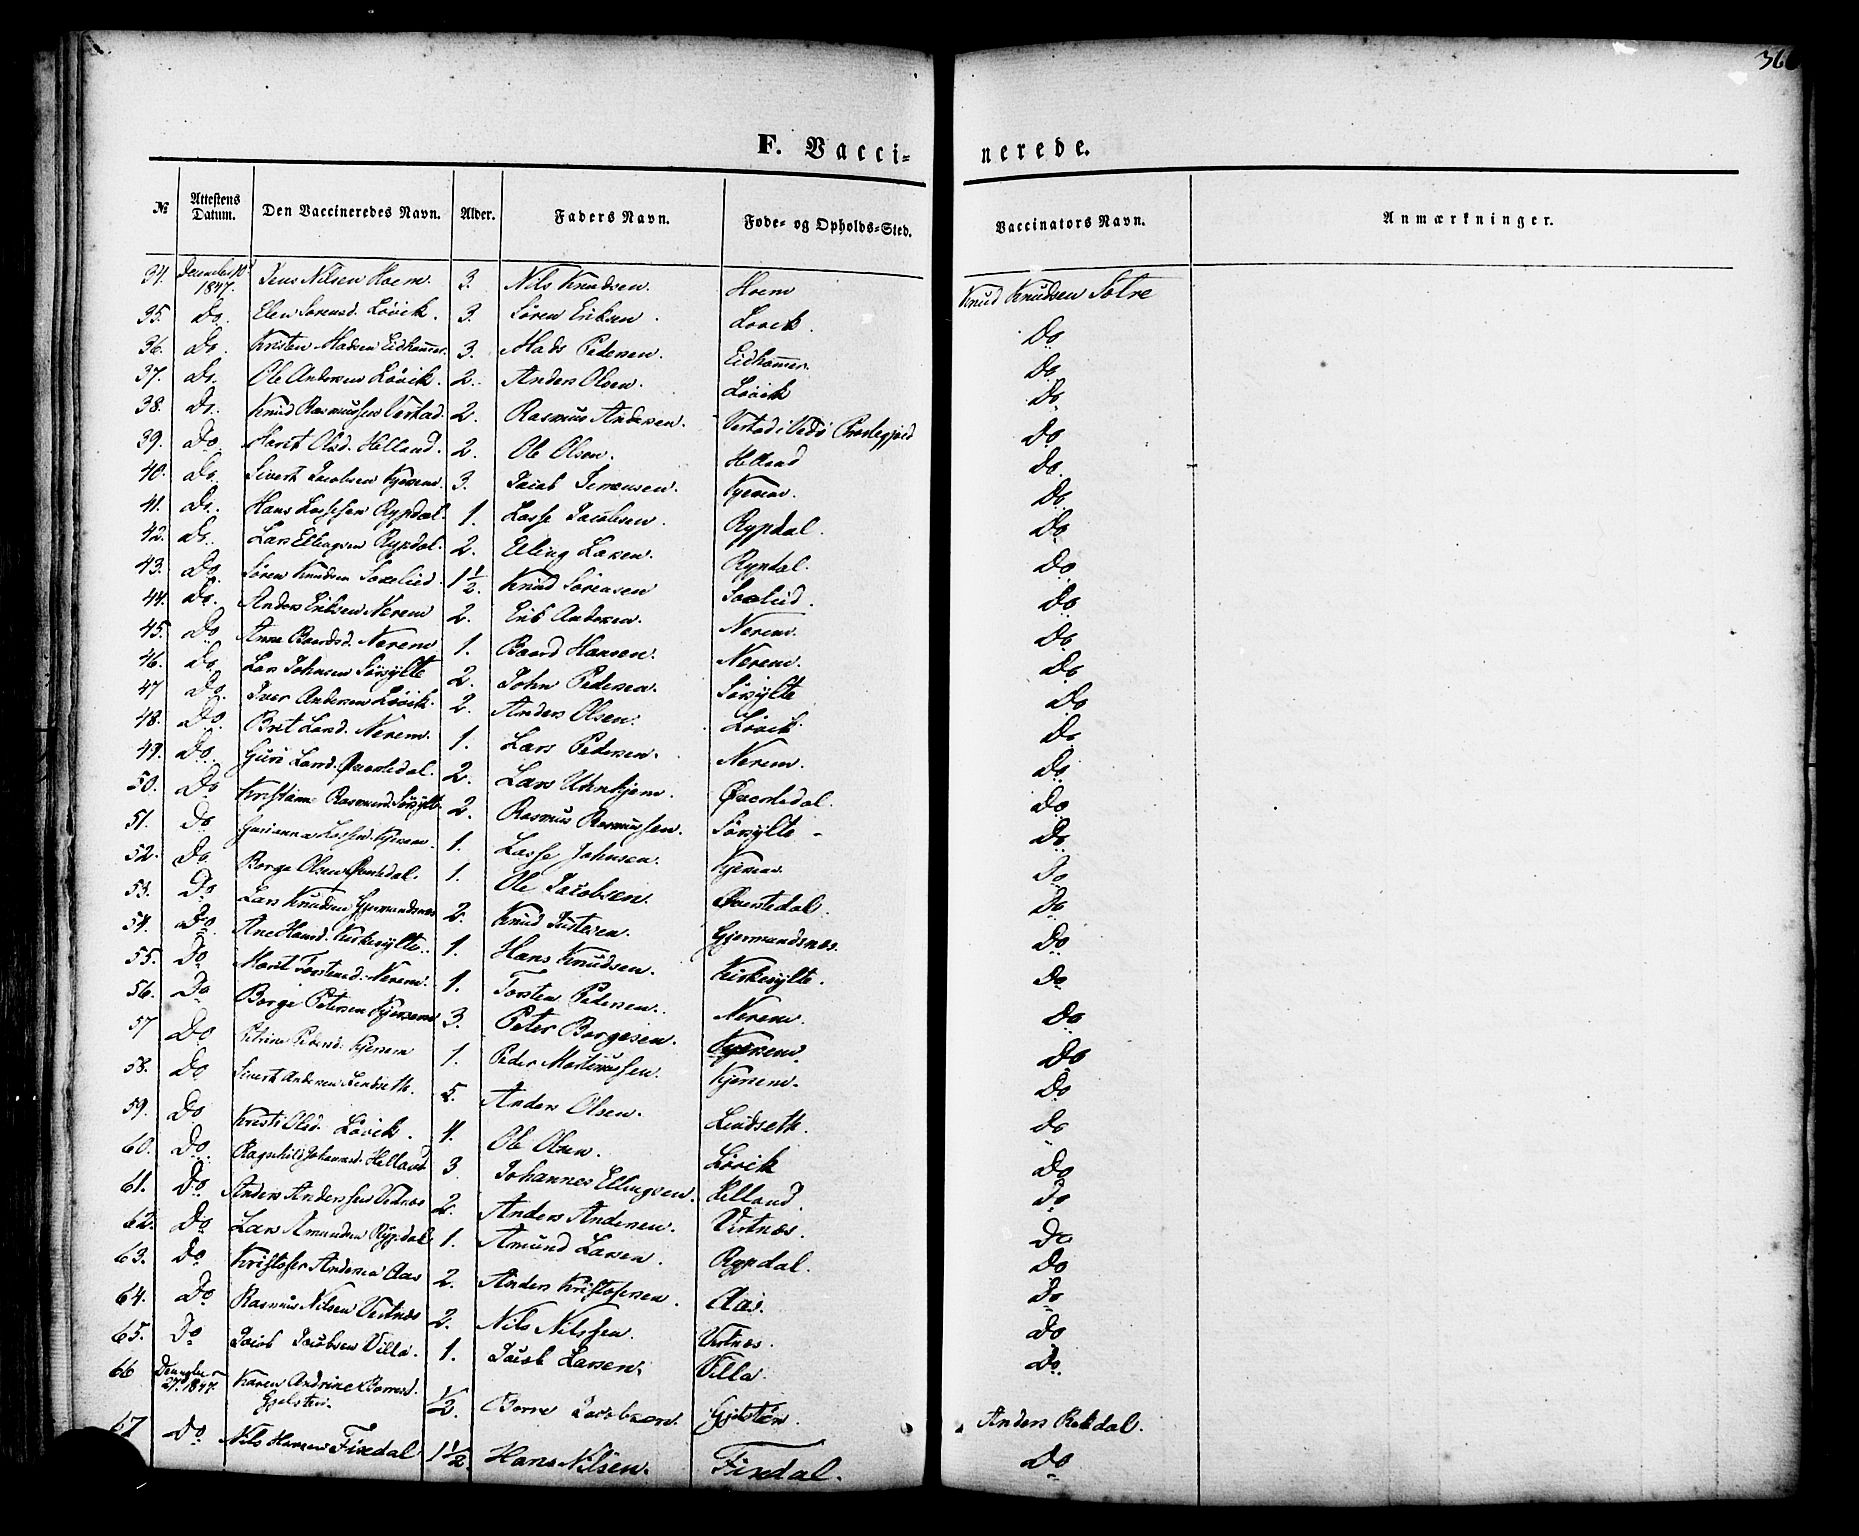 36
F. Vacci-nerede.
№ Attestens Datum. Den Vaccineredes Navn. Alder. Faders Navn. Føde- og Opholds-Sted. Vaccinators Navn. Anmærkninger.
34. December 1847. Jens Nilsen Hoem. 3. Nils Knudsen. Hoem Knud Knudsen Solre
35. Do. Elen Sørensd. Løvik. 3. Søren Eriksen. Løvik. Do
36. Do. Kristen Madsen Eidhammer. 3. Mads Pedersen. Eidhammer. Do
37. Do. Ole Andersen Løvik. 2. Anders Olsen. Løvik Do
38. Do. Knud Rasmussen Verstad 2. Rasmus Andersen. Verstad i Vedø Prestegjeld Do
39. Do Marit Olsd. Helland. 2. Ole Olsen. Helland Do
40. Do. Sivert Jacobsen Kjersem. 3. Jacob Simensen. Kjersem. Do
41. Do. Hans Lassesen Rypdal. 1. Lasse Jacobsen. Rypdal. Do
42. Do. Lars Ellingsen Rypdal. 2. Elling Larsen. Rypdal. Do
43. Do. Søren Knudsen Saxelied. 1½. Knud Sørensen Saxelied. Do
44. Do. Anders Eriksen Nerem 2. Erik Andersen. Nerem. Do
45. Do Anne Baardsd. Nerem 1. Baard Hansen. Nerem. Do
46. Do. Lars Johnsen Sørsylte 2. John Pedersen. Sørsylte Do
47 Do. Iver Andersen Løvik. 2. Anders Olsen. Løvik. Do
48. Do. Brit Larsd. Nerem. 1. Lars Pedersen. Nerem. Do
49. Do. Guri Larsd. Øverstedal. 2. Lars Utnhjem. Øverstedal. Do
50. Do Kristianne Rasmusd. Sørsylte. 2. Rasmus Rasmussen. Sørsylte Do
51. Do Gurianna Lassesd. Kjersem. 1. Lasse Johnsen. Kjersem. Do
52. Do Børge Olsen Øverstedal. 1. Ole Jacobsen. Øverstedal. Do
53. Do Lars Knudsen Gjermundsnæs 2. Knud Iversen. Gjermundsnæs. Do
54. Do. Ane Hansd. Kirkesylte. 1. Hans Knudsen. Kirkesylte. Do
55. Do Marit Torstensd. Nerem. 1. Torsten Pedersen. Nerem. Do
56. Do Børge Petersen Kjersem 3. Peter Børgesen. Kjersem. Do
57 Do Petrine Pedersd. Kjersem 1. Peder Mortenssen. Kjersem. Do
58. Do Sivert Andersen Lindseth. 5. Anders Olsen. Lindseth. Do
59. Do Kristi Olsd. Løvik. 4. Ole Olsen. Løvik Do
60. Do. Ragnhild Johannesd. Helland 3 Johannes Ellingsen. Helland. Do
61. Do Anders Anderssen Vestnæs 2. Anders Andersen. Vestnæs. Do
62. Do Lars Amundsen Rypdal 1. Amund Larsen. Rypdal. Do
63. Do Kristofer Andersen Aas 2. Anders Kristofersen. Aas. Do
64. Do Rasmus Nilsen Vestnæs 2. Nils Nilssen. Vestnæs. Do
65. Do Jacob Jacobsen Villa. 1. Jacob Larsen. Villa. Do
66 December 27. 1847. Karen Andrine Børresd. Gjelsten. ½. Børre Jacobsen. Gjelsten. Anders Rekdal.
67 Do Nils Hansen Fixedal 1½. Hans Nilsen. Fixedal. Do